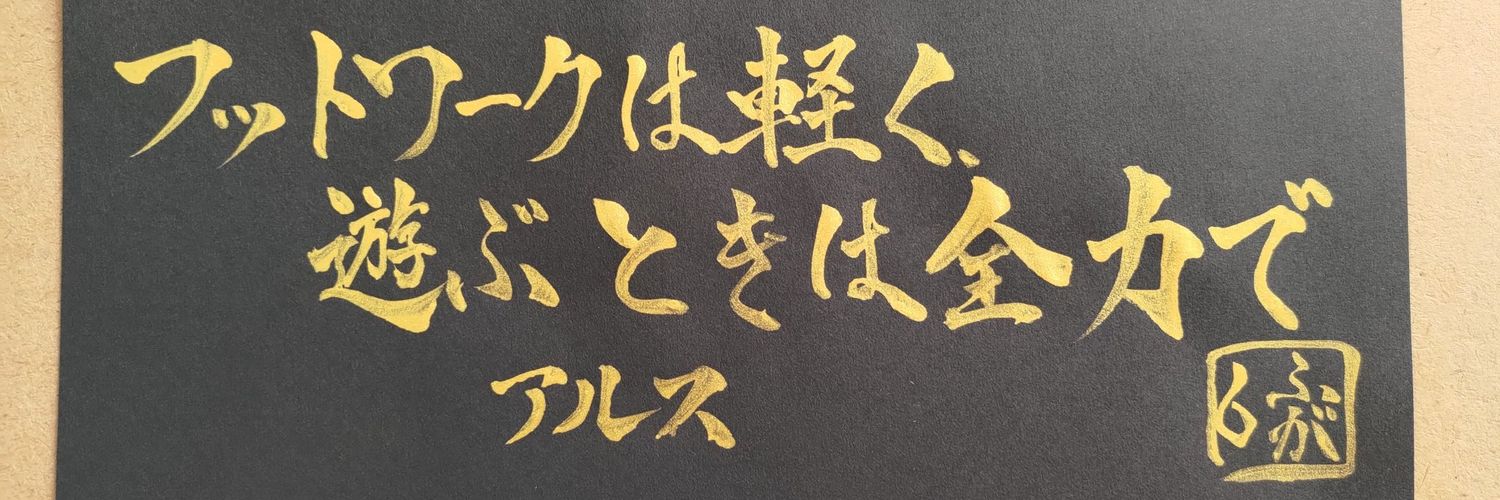 フットワークは軽く、
遊ぶときは全力で
アルス
ふが